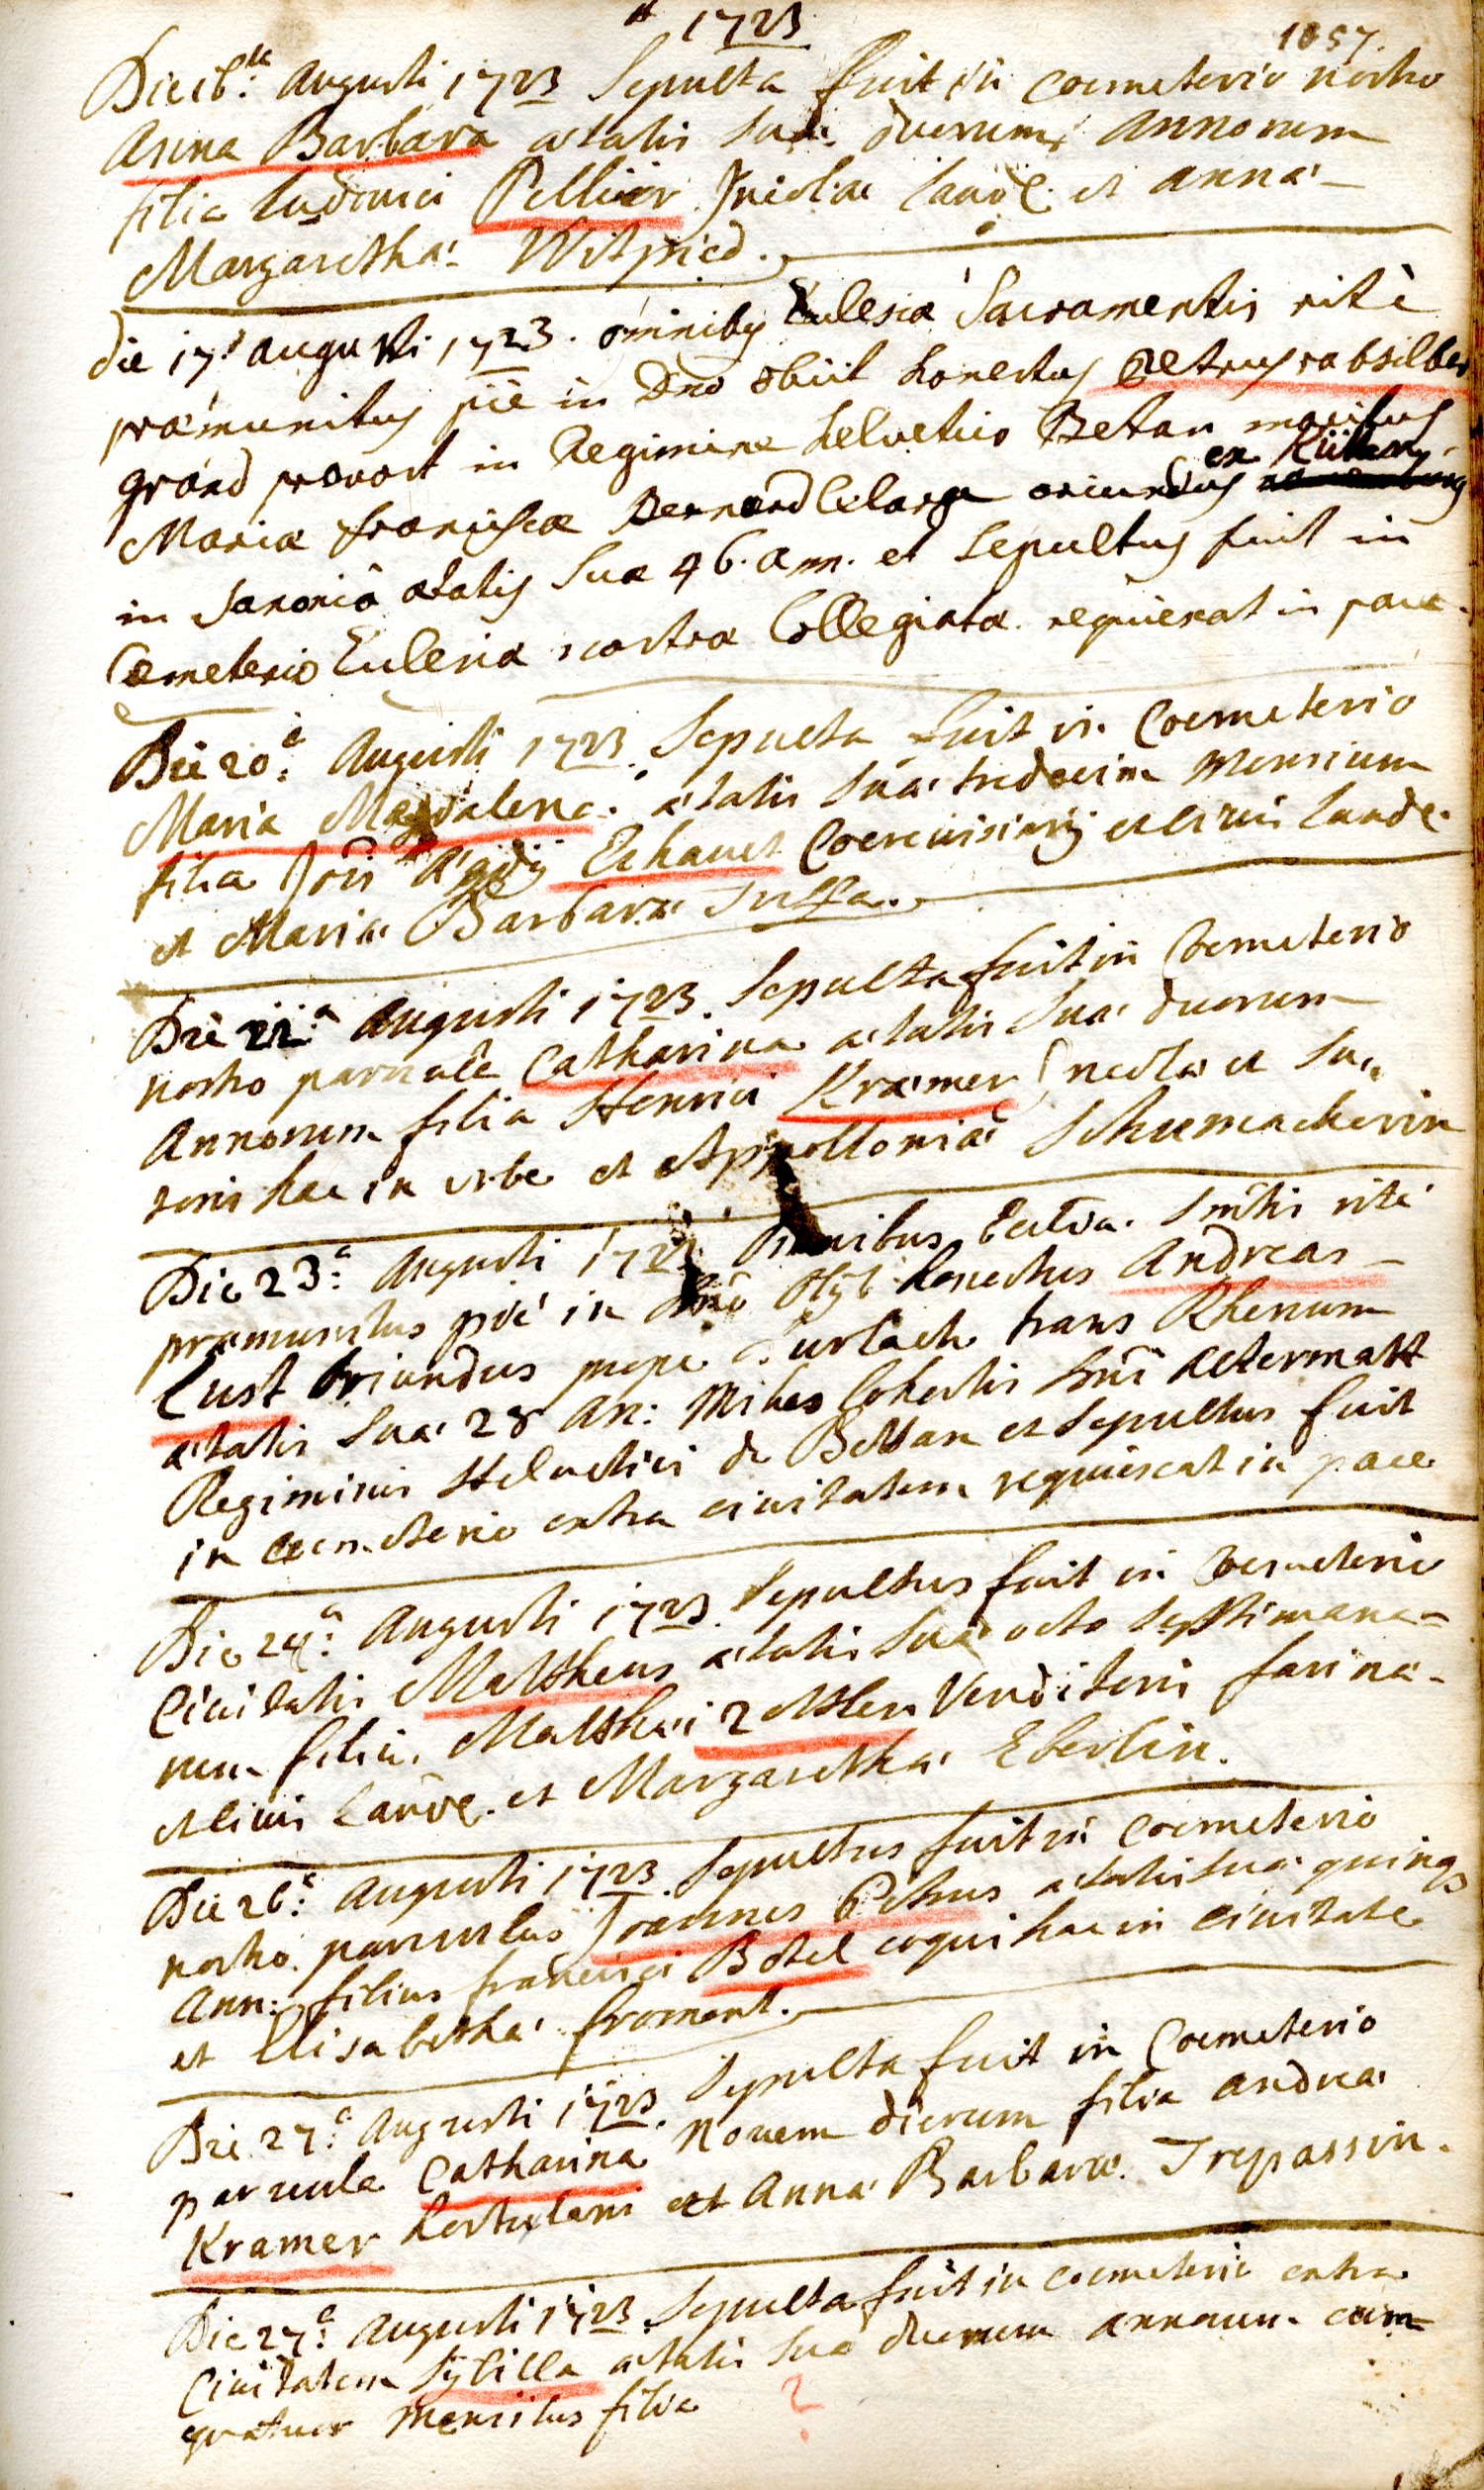 1723
1057.
Die 16.ta Augusti 1723 Sepulta fuit in Coemeterio nostro
Anna Barbara ætatis Suæ duorum Annorum
filia Ludovici Pellier Incolae Landæ. et Annæ
Margarethæ Witpied.
die 17.a augusti 1723. omnibus Ecclesiæ Sacramentis ritè
præmunitus piè in Dno obiit honestus Petrus rabsilber
grand prevost in Regimine helvetico Betan maritus
Mariæ franciscæ Bernard Clara oriundus ex Küllen
in Saxoniâ ætatis Suæ 46. ann. et Sepultus fuit in
Cæmeterio Ecclesiæ nostræ Collegiatæ. requiescat in pace.
Die 20.a Augusti 1723. Sepulta fuit in Coemeterio
Maria Magdalena. ætatis Suæ tredecim Mensium
filia Jois Ægidij Echauet Coerevisiarij et civis Landæ.
et Mariæ Barbaræ
Die 22.a Augusti 1723. Sepulta fuit in Coemeterio
nostro parvula Catharina ætatis Suæ duorum
Annorum filia Henrici Kræmer Incolæ et Su„
toris hac in urbe et Appolloniæ Schumacherin
Die 23.a Augusti 1723 Omnibus Eccliæ. Smtis ritè
præmunitus piè in dno obijt honestus Andreas
Cust Oriundus prope Durlach trans Rhenum
ætatis Suæ 28 An: Miles Cohortis Dni Actermatt
Regiminis Helvetici de Bettan et Sepultus fuit
in coemeterio extra civitatem requiescat in pace
Die 24.a Augusti 1723. Sepultus fuit in Coemeterio
Civitatis Mattheus ætatis Suæ octo Septimana-
rum filius Matthæi Zettler Venditoris farinæ
et civis Landæ. et Margarethæ Eberlin.
Die 26.a Augusti 1723 Sepultus fuit in Coemeterio
nostro parvulus Joannes Petrus ætatis Suæ quinq
Ann: filius francisci Botel coqui hac in civitate
et Elisabethæ froment.
Die 27.a Augusti 1723. Sepulta fuit in Coemeterio
parvula Catharina Novem dierum filia Andreæ
Kramer hortulani et Annæ Barbaræ Trepassin.
Die 27.a Augusti 1723 Sepulta fuit in Coemeterio extra
Civitatem Sybilla ætatis Suæ duorum annorum cum
quatuor Mensibus filia ?